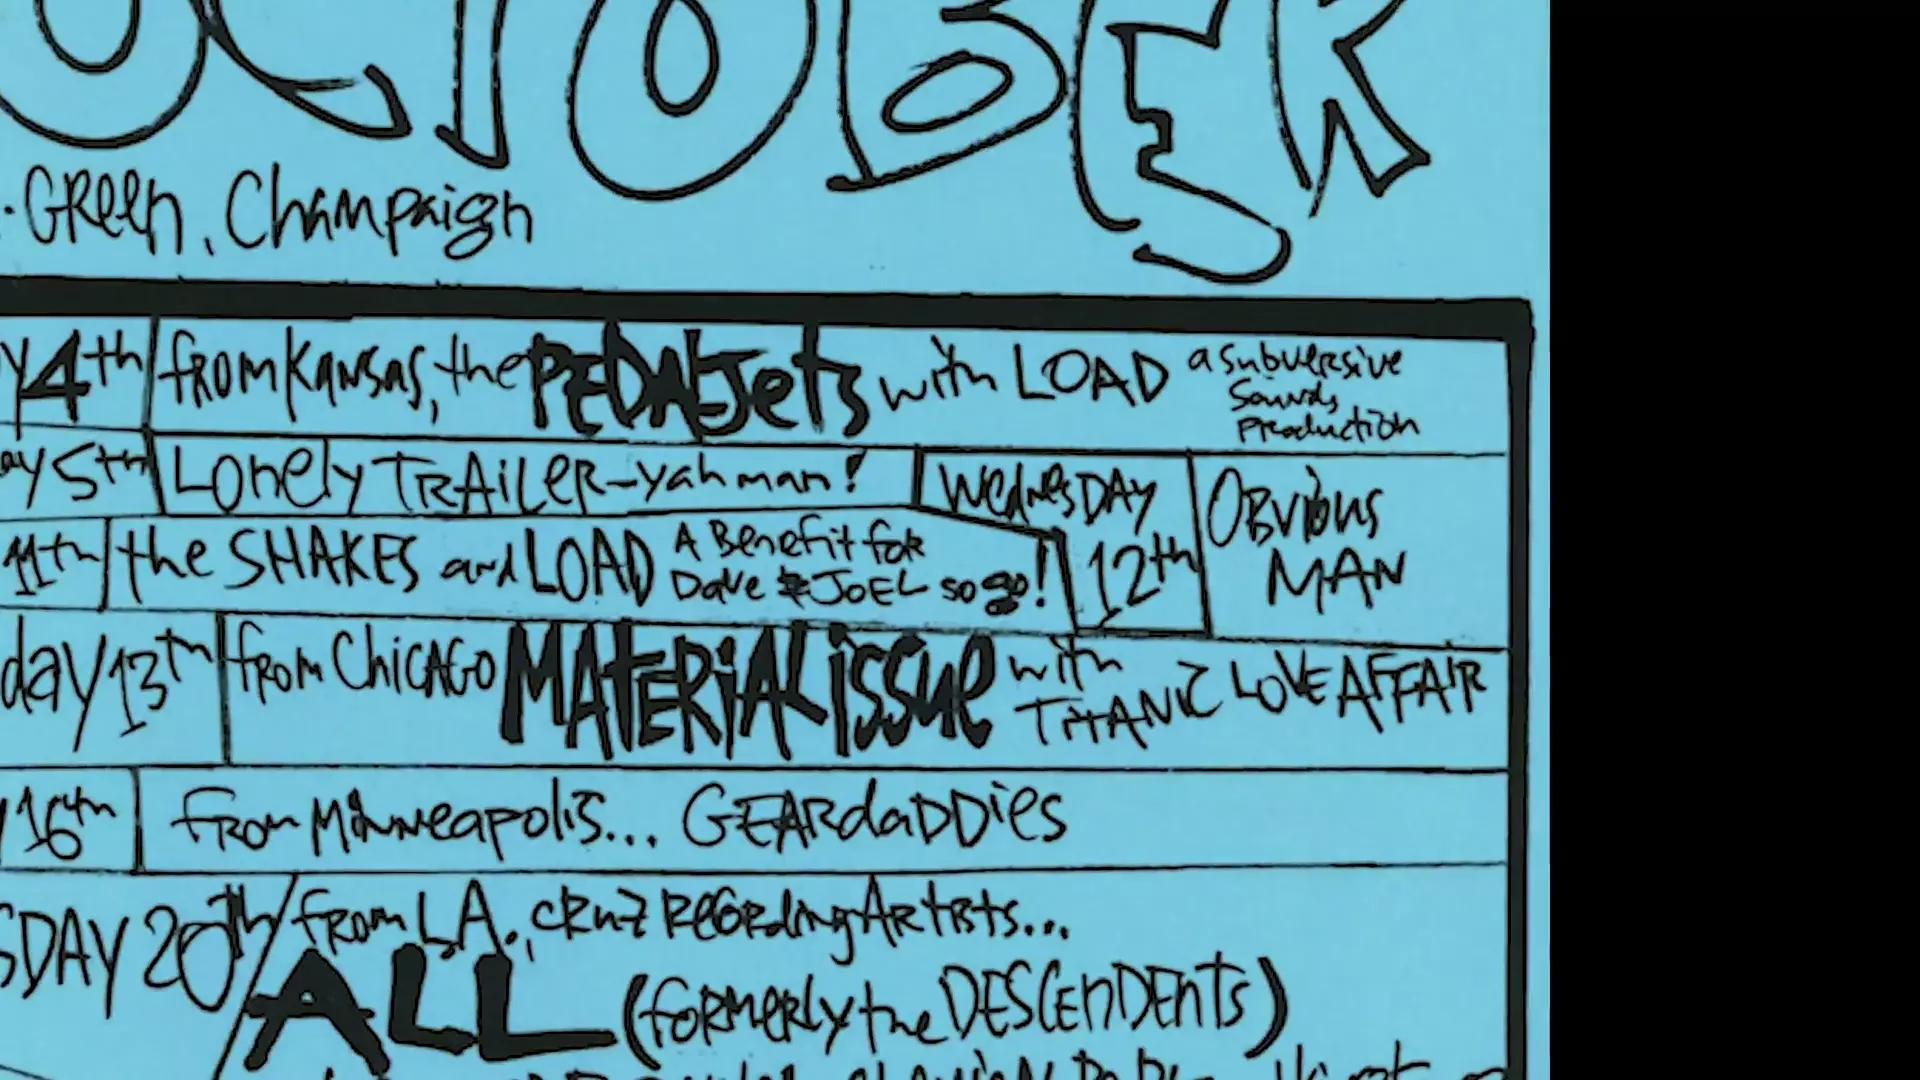 OCTOBER
. Green, Champaign
y 4th from Kansas, the PEDALJets with LOAD a subversive Sounds Production
ay 5th Lonely TRAILER - yah man!
Wednesday 12th OBVIOUS MAN
11th the SHAKES and LOAD A Benefit for Dave & JOEL so go!
day 13th from CHICAGO MATERIAL issue with TITANIC LOVE AFFAIR
16th from Minneapolis... GEARdaDDies
SDAY 20th from L.A., CRUZ RecordingArtists...
ALL (formerly the DESCENDENTS)